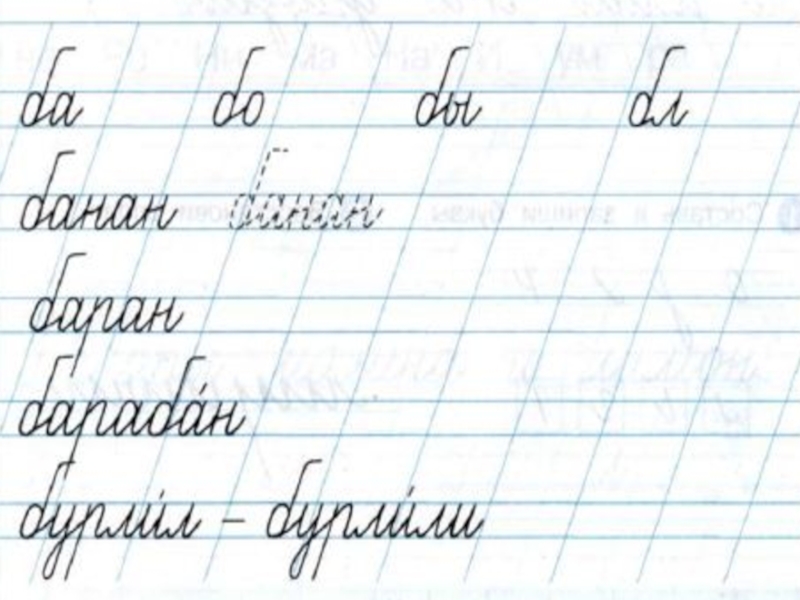 ба бо бы бл
банан банан
баран
бараба́н
бурли́л – бурли́ли